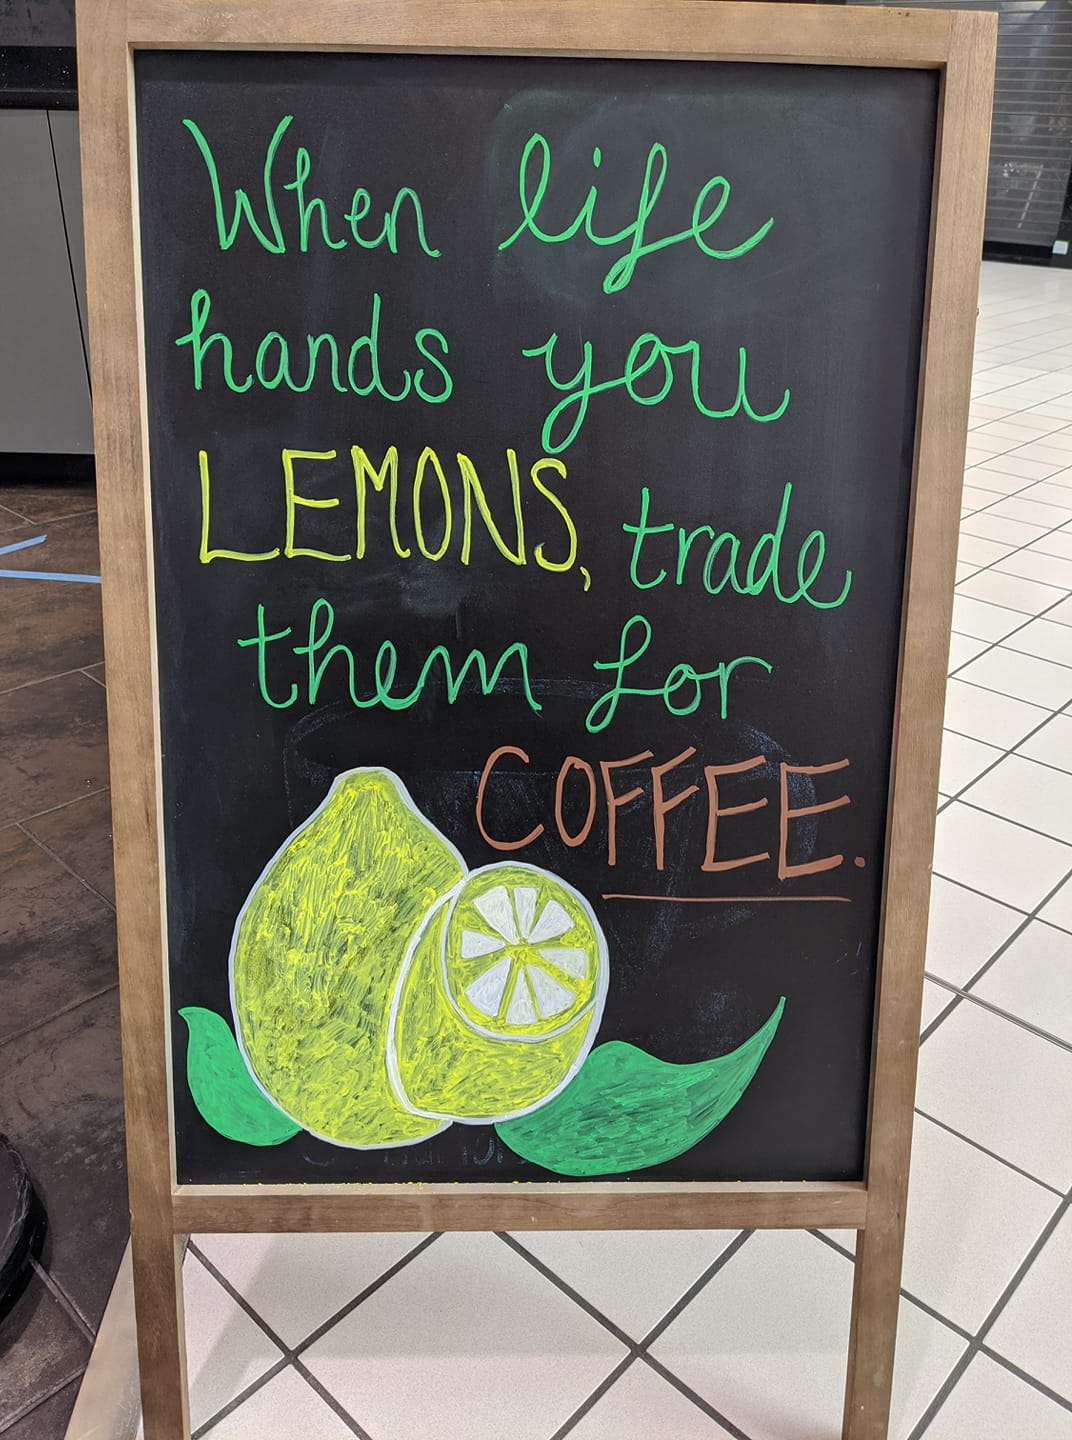 When life
hands you
LEMONS, trade
them for
COFFEE.